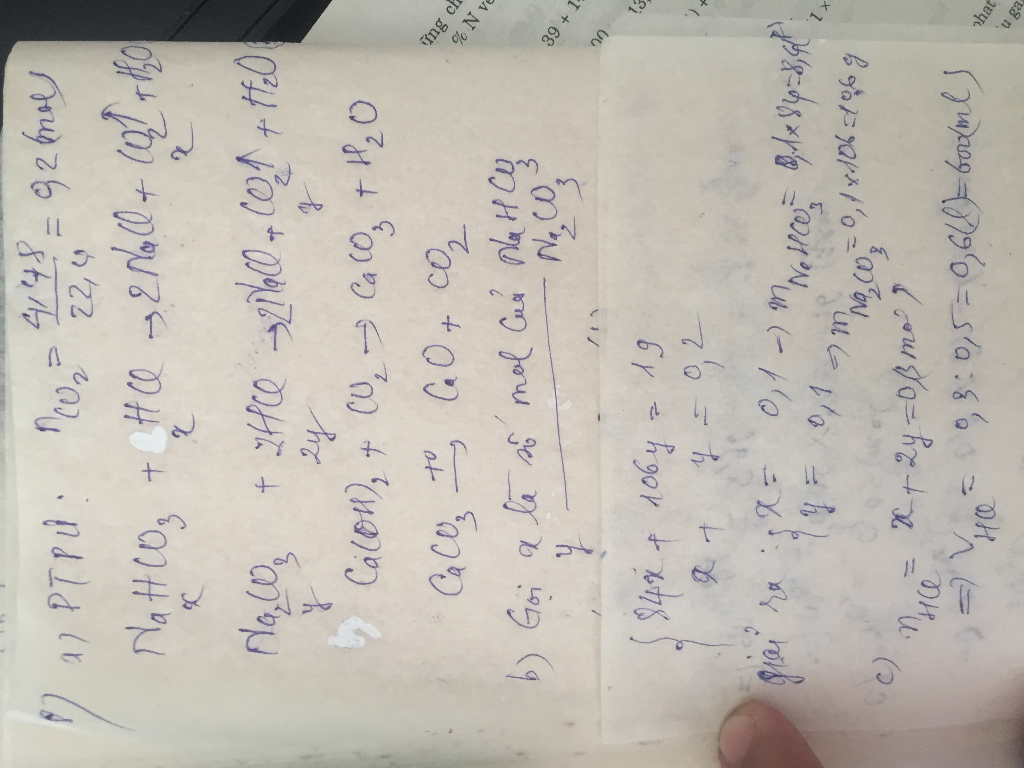 8)
a) PTPƯ: nCO2 = 4,48/22,4 = 0,2 (mol)
NaHCO3 + HCl → 2NaCl + CO2↑ + H2O
x x x
Na2CO3 + 2HCl → 2NaCl + CO2↑ + H2O
y 2y y
Ca(OH)2 + CO2 → CaCO3 + H2O
CaCO3 t° → CaO + CO2
b) Gọi x là số mol của NaHCO3
y Na2CO3
{ 84x + 106y = 19
x + y = 0,2
giải ra { x = 0,1 → mNaHCO3 = 0,1 x 84 = 8,4g
y = 0,1 → mNa2CO3 = 0,1 x 106 = 10,6g
c) nHCl = x + 2y = 0,3 mol
=> VHCl = 0,3 : 0,5 = 0,6(l) = 600(ml)
ing ch
% N v
39 + 1
00
13,
1 ×
phat